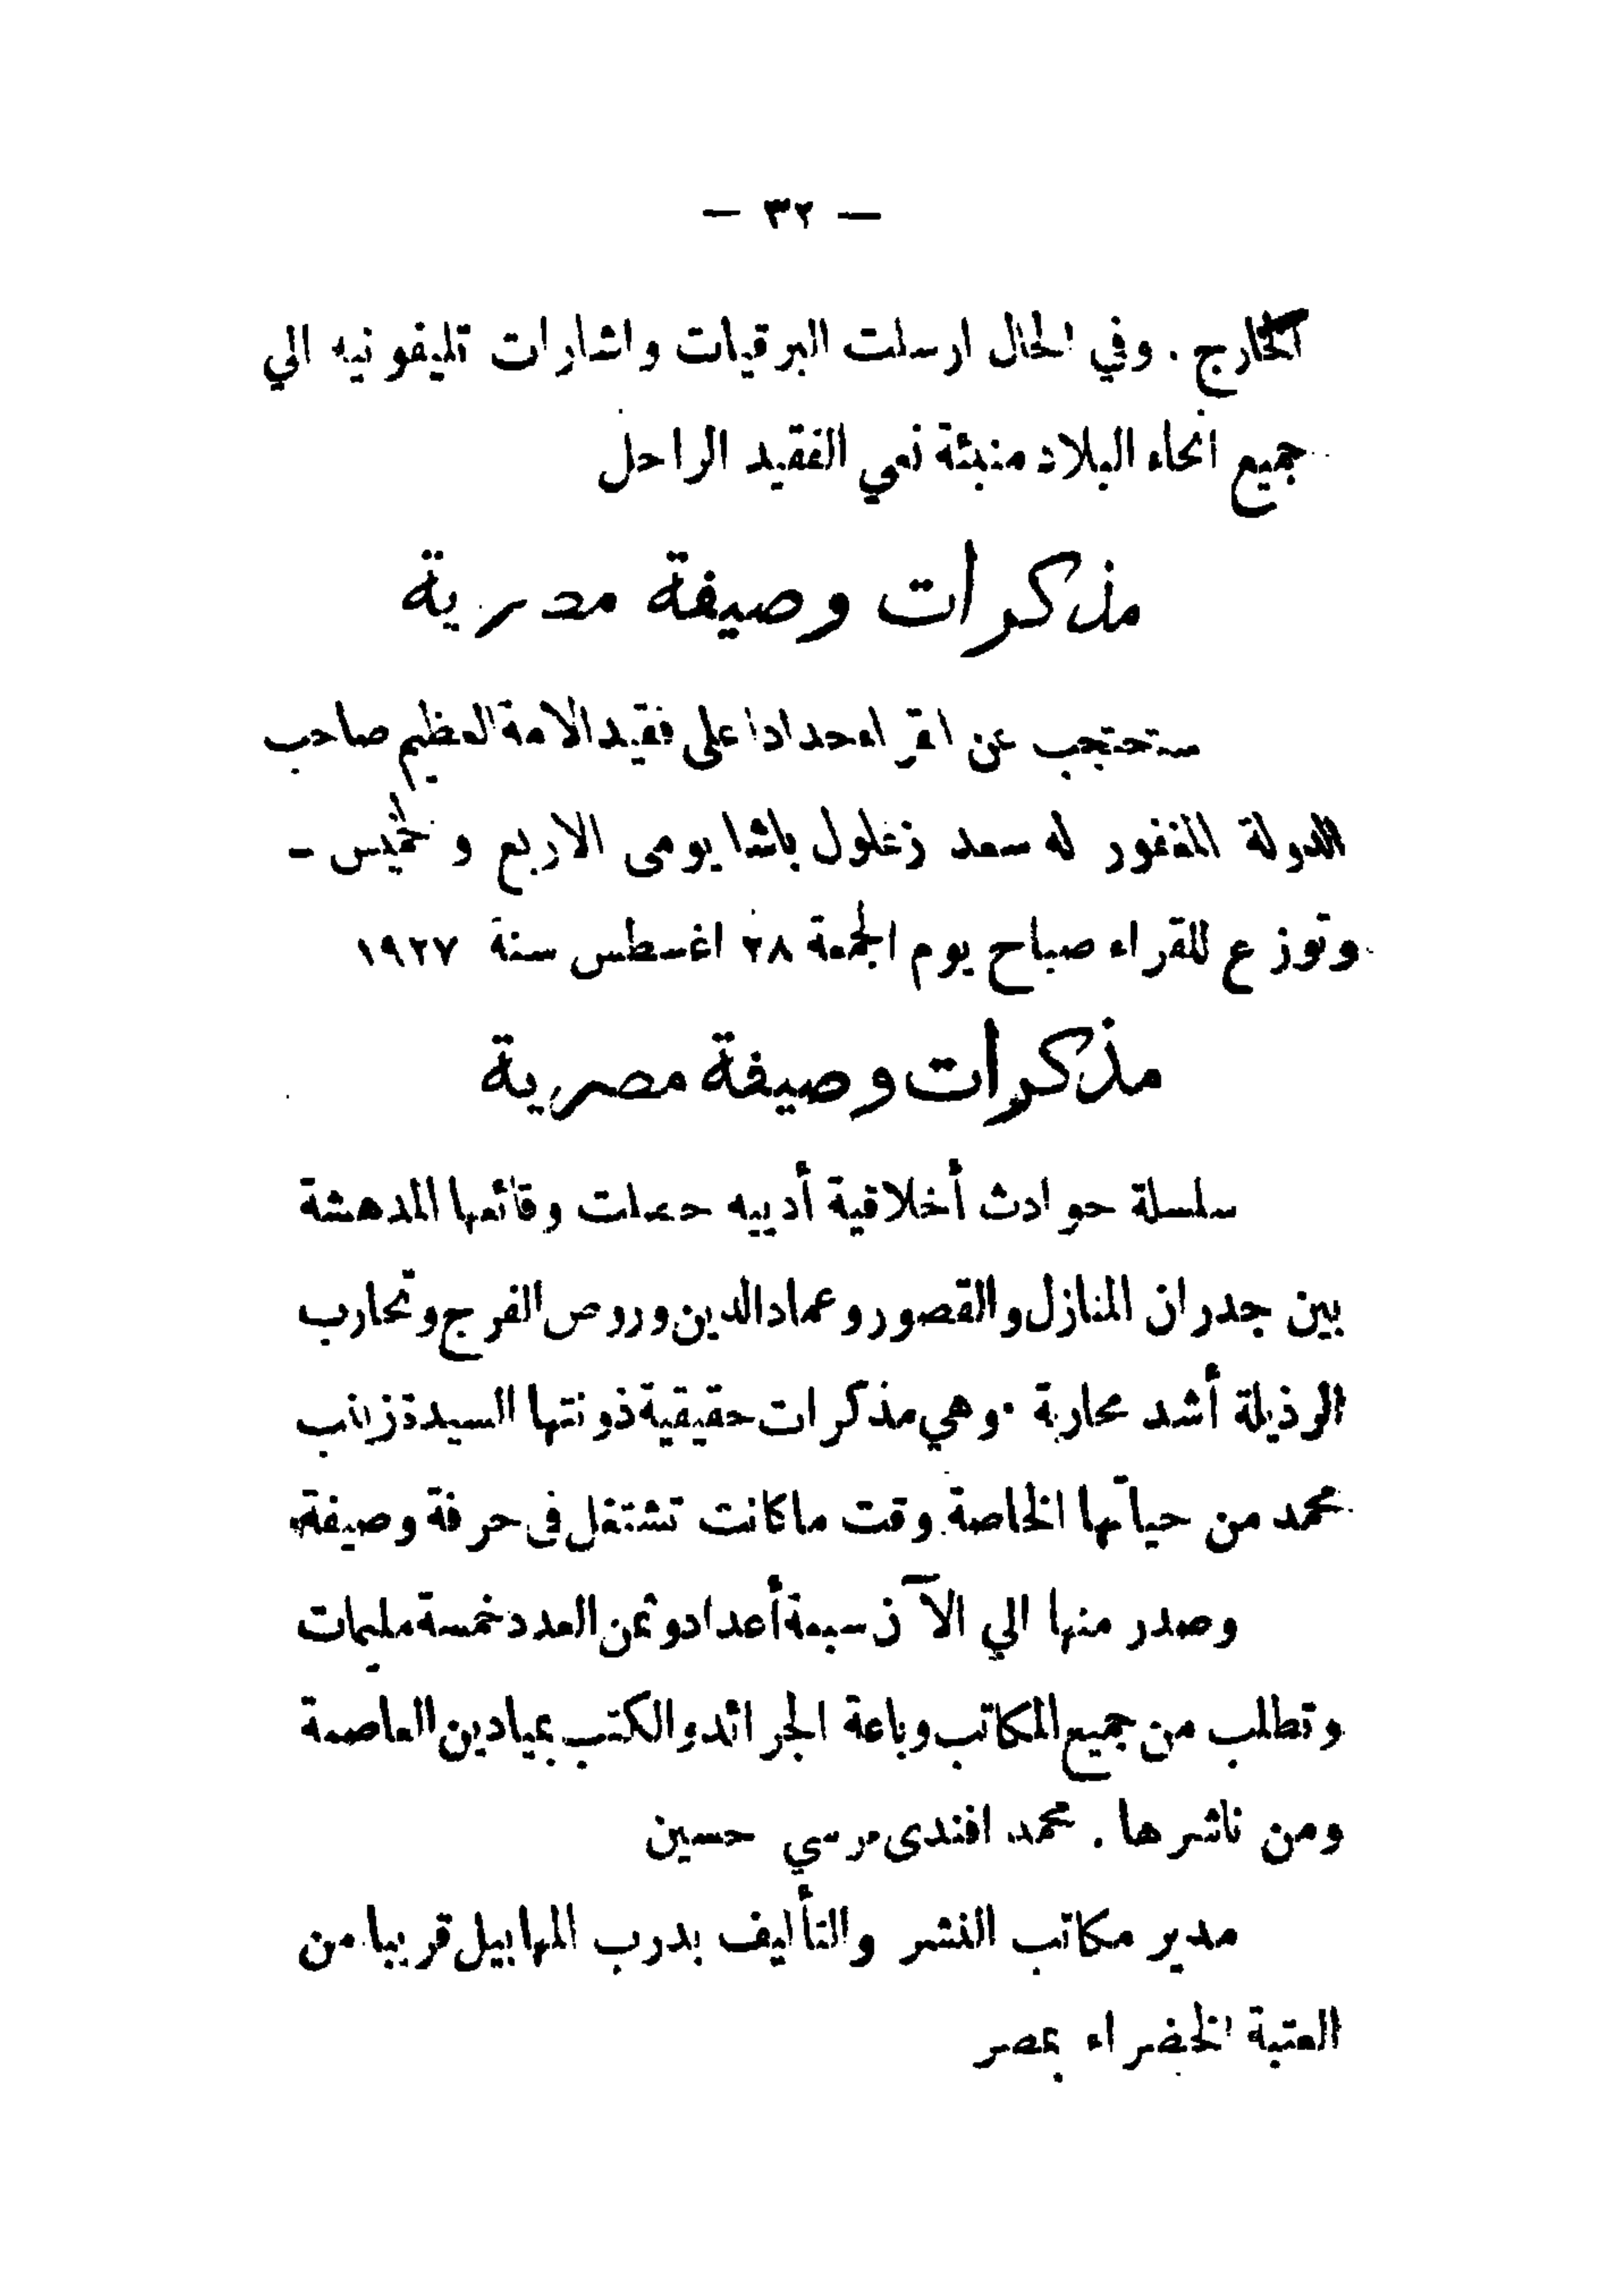 — ٣٢ —
الخارج . وفي الحال ارسلت البرقيات واشارات تليفونيه الي
جميع انحاء البلاد منبئة نعي الفقيد الراحل
مذكرات وصيفة مصرية
ستحتجب عن القراء حدادا على فقيد الامة العظيم صاحب
الدولة المغفور له سعد زغلول باشا يومى الاربع و خميس -
وتوزع للقراء صباح يوم الجمعة ٢٨ اغسطس سنة ١٩٢٧
مذكرات وصيفة مصرية
سلسلة حوادث أخلاقية أدبيه حصلت وقائعها المدهشة
بين جدران المنازل والقصور وعماد الدين وروض الفرج وتحارب
الرذيلة أشد محاربة . وهي مذكرات حقيقية ذونتها السيدة زينب
محمد من حياتها الخاصة وقت ما كانت تشتغل فى حرفة وصيفة
وصدر منها الي الآن سبعة أعداد وثمن العدد خمسة مليمات
وتطلب من جميع المكاتب وباعة الجرائد والكتب بميادين العاصمة
ومن ناشرها . محمد افندى مرسي حسين
مدير مكاتب النشر والتأليف بدرب المهابيل قريبا من
العتبة الخضراء بمصر